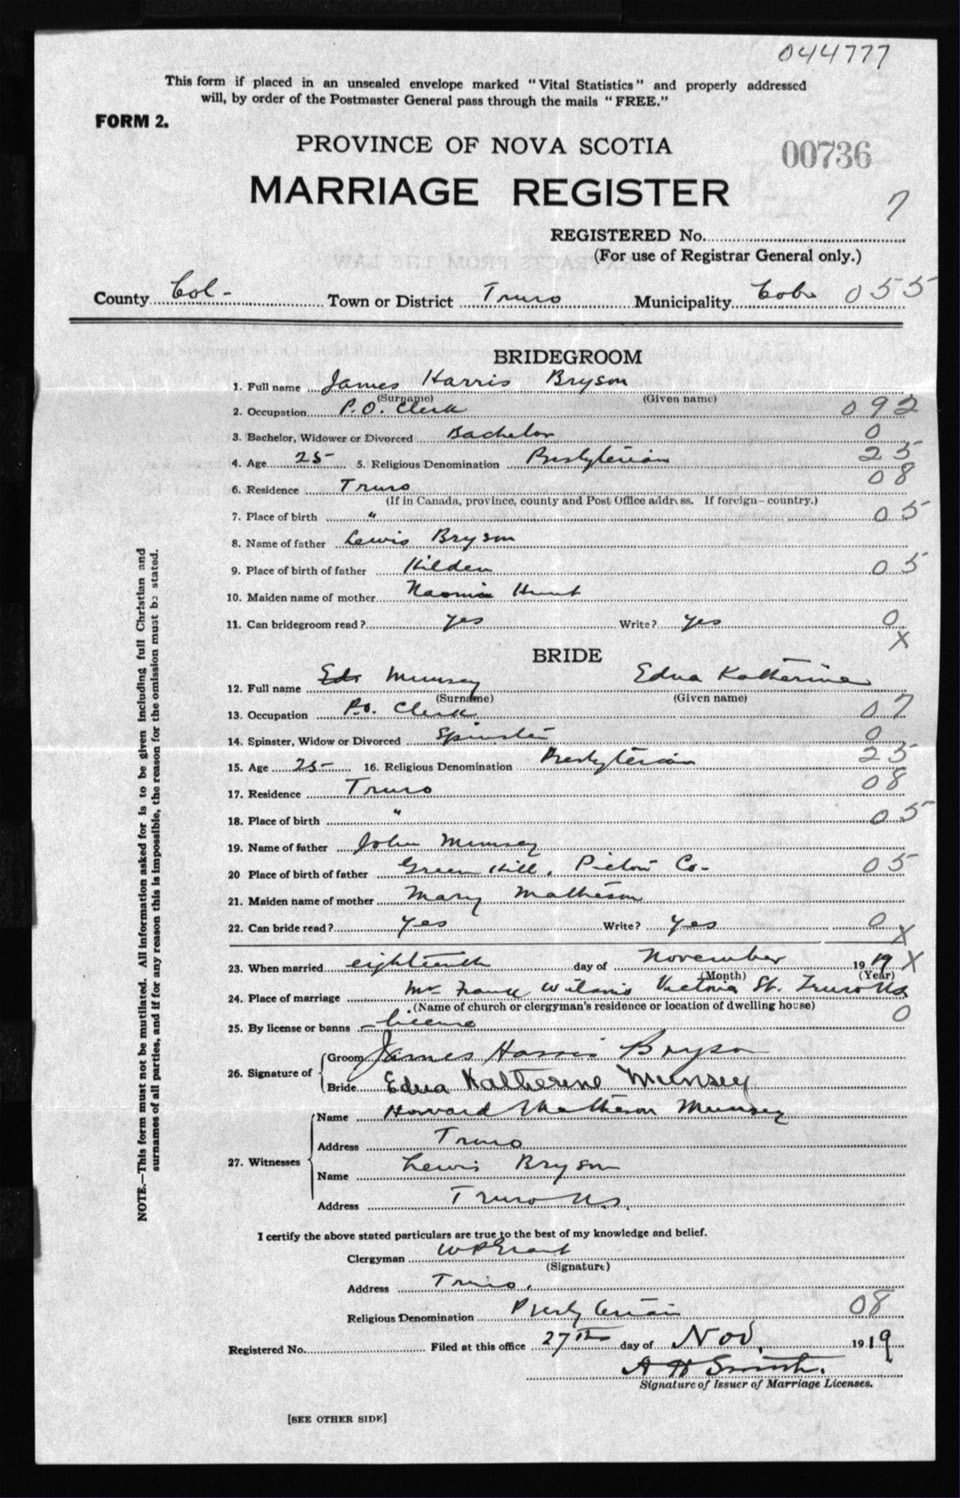 044777
This form if placed in an unsealed envelope marked "Vital Statistics" and properly addressed
will, by order of the Postmaster General pass through the mails "FREE."
FORM 2.
PROVINCE OF NOVA SCOTIA
00736
MARRIAGE REGISTER
7
REGISTERED No.
(For use of Registrar General only.)
County Col- Town or District Truro Municipality Colr 055
BRIDEGROOM
1. Full name James Harris Bryson
(Surname) (Given name)
2. Occupation P.O. Clerk 092
3. Bachelor, Widower or Divorced Bachelor 0
4. Age 25- 5. Religious Denomination Presbyterian 25
6. Residence Truro 08
(If in Canada, province, county and Post Office address. If foreign—country.)
7. Place of birth " 05
8. Name of father Lewis Bryson
9. Place of birth of father Hilden 05
10. Maiden name of mother Naomi Hunt
11. Can bridegroom read? yes Write? yes 0
X
BRIDE
12. Full name Munsey Edna Katherine
(Surname) (Given name)
13. Occupation P.O. Clerk 07
14. Spinster, Widow or Divorced Spinster 0
15. Age 25- 16. Religious Denomination Presbyterian 25
17. Residence Truro 08
18. Place of birth " 05
19. Name of father John Munsey
20 Place of birth of father Green Hill, Pictou Co- 05
21. Maiden name of mother Mary Matheson
22. Can bride read? yes Write? yes 0 X
23. When married eighteenth day of November 1919 X
(Month) (Year)
24. Place of marriage Mr Frank Wilson's Victoria St. Truro NS
(Name of church or clergyman's residence or location of dwelling house)
25. By license or banns license 0
26. Signature of Groom James Harris Bryson
Bride Edna Katherene Munsey
27. Witnesses Name Howard Matheson Munsey
Address Truro
Name Lewis Bryson
Address Truro N.S.
I certify the above stated particulars are true to the best of my knowledge and belief.
Clergyman W P Grant
(Signature)
Address Truro,
Religious Denomination Presbyterian 08
Registered No. Filed at this office 27th day of Nov. 1919
A H Smith.
Signature of Issuer of Marriage Licenses.
[SEE OTHER SIDE]
NOTE.—This form must not be mutilated. All information asked for is to be given including full Christian and
surnames of all parties, and if for any reason this is impossible, the reason for the omission must be stated.